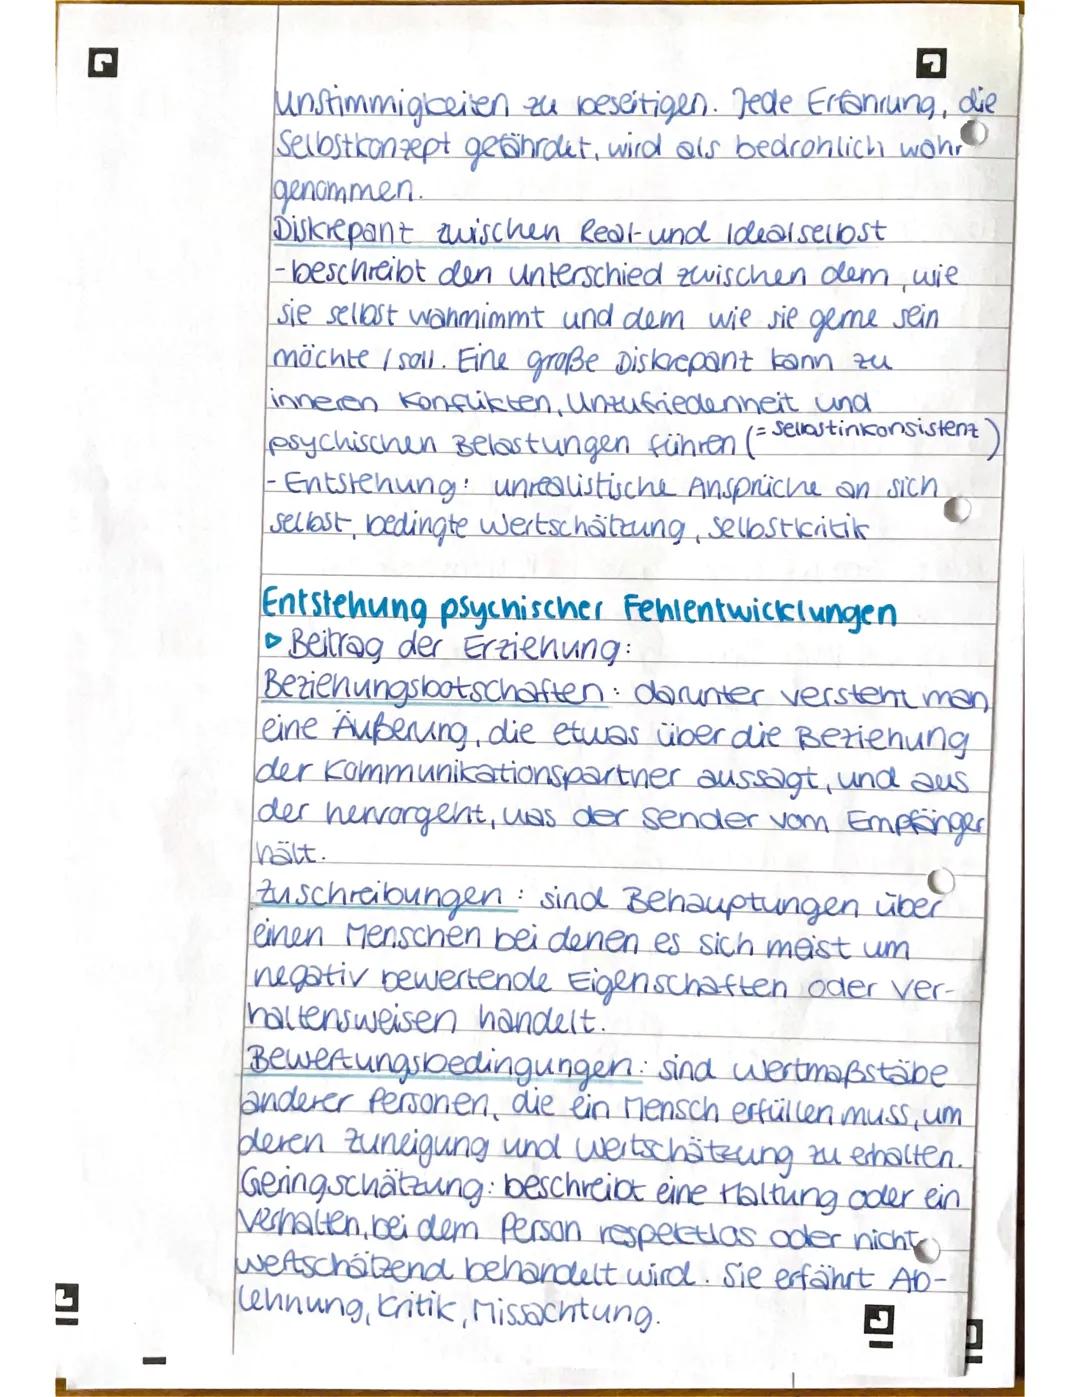 Unstimmigkeiten zu beseitigen. Jede Erfahrung, die
Selbstkonzept gefährdet, wird als bedrohlich wahr
genommen.
Diskrepanz zwischen Real- und Idealselbst
- beschreibt den Unterschied zwischen dem, wie
sie selbst wahrnimmt und dem wie sie gerne sein
möchte / soll. Eine große Diskrepanz kann zu
inneren Konflikten, Unzufriedenheit und
psychischen Belastungen führen (= Selbstinkonsistenz)
- Entstehung: unrealistische Ansprüche an sich
selbst, bedingte Wertschätzung, Selbstkritik
Entstehung psychischer Fehlentwicklungen
▷ Beitrag der Erziehung:
Beziehungsbotschaften: darunter versteht man
eine Äußerung, die etwas über die Beziehung
der Kommunikationspartner aussagt, und aus
der hervorgeht, was der Sender vom Empfänger
hält.
Zuschreibungen: sind Behauptungen über
einen Menschen bei denen es sich meist um
negativ bewertende Eigenschaften oder Ver-
haltensweisen handelt.
Bewertungsbedingungen: sind Wertmaßstäbe
anderer Personen, die ein Mensch erfüllen muss, um
deren Zuneigung und Wertschätzung zu erhalten.
Geringschätzung: beschreibt eine Haltung oder ein
Verhalten, bei dem Person respektlos oder nicht
wertschätzend behandelt wird. Sie erfährt Ab-
lehnung, Kritik, Missachtung.